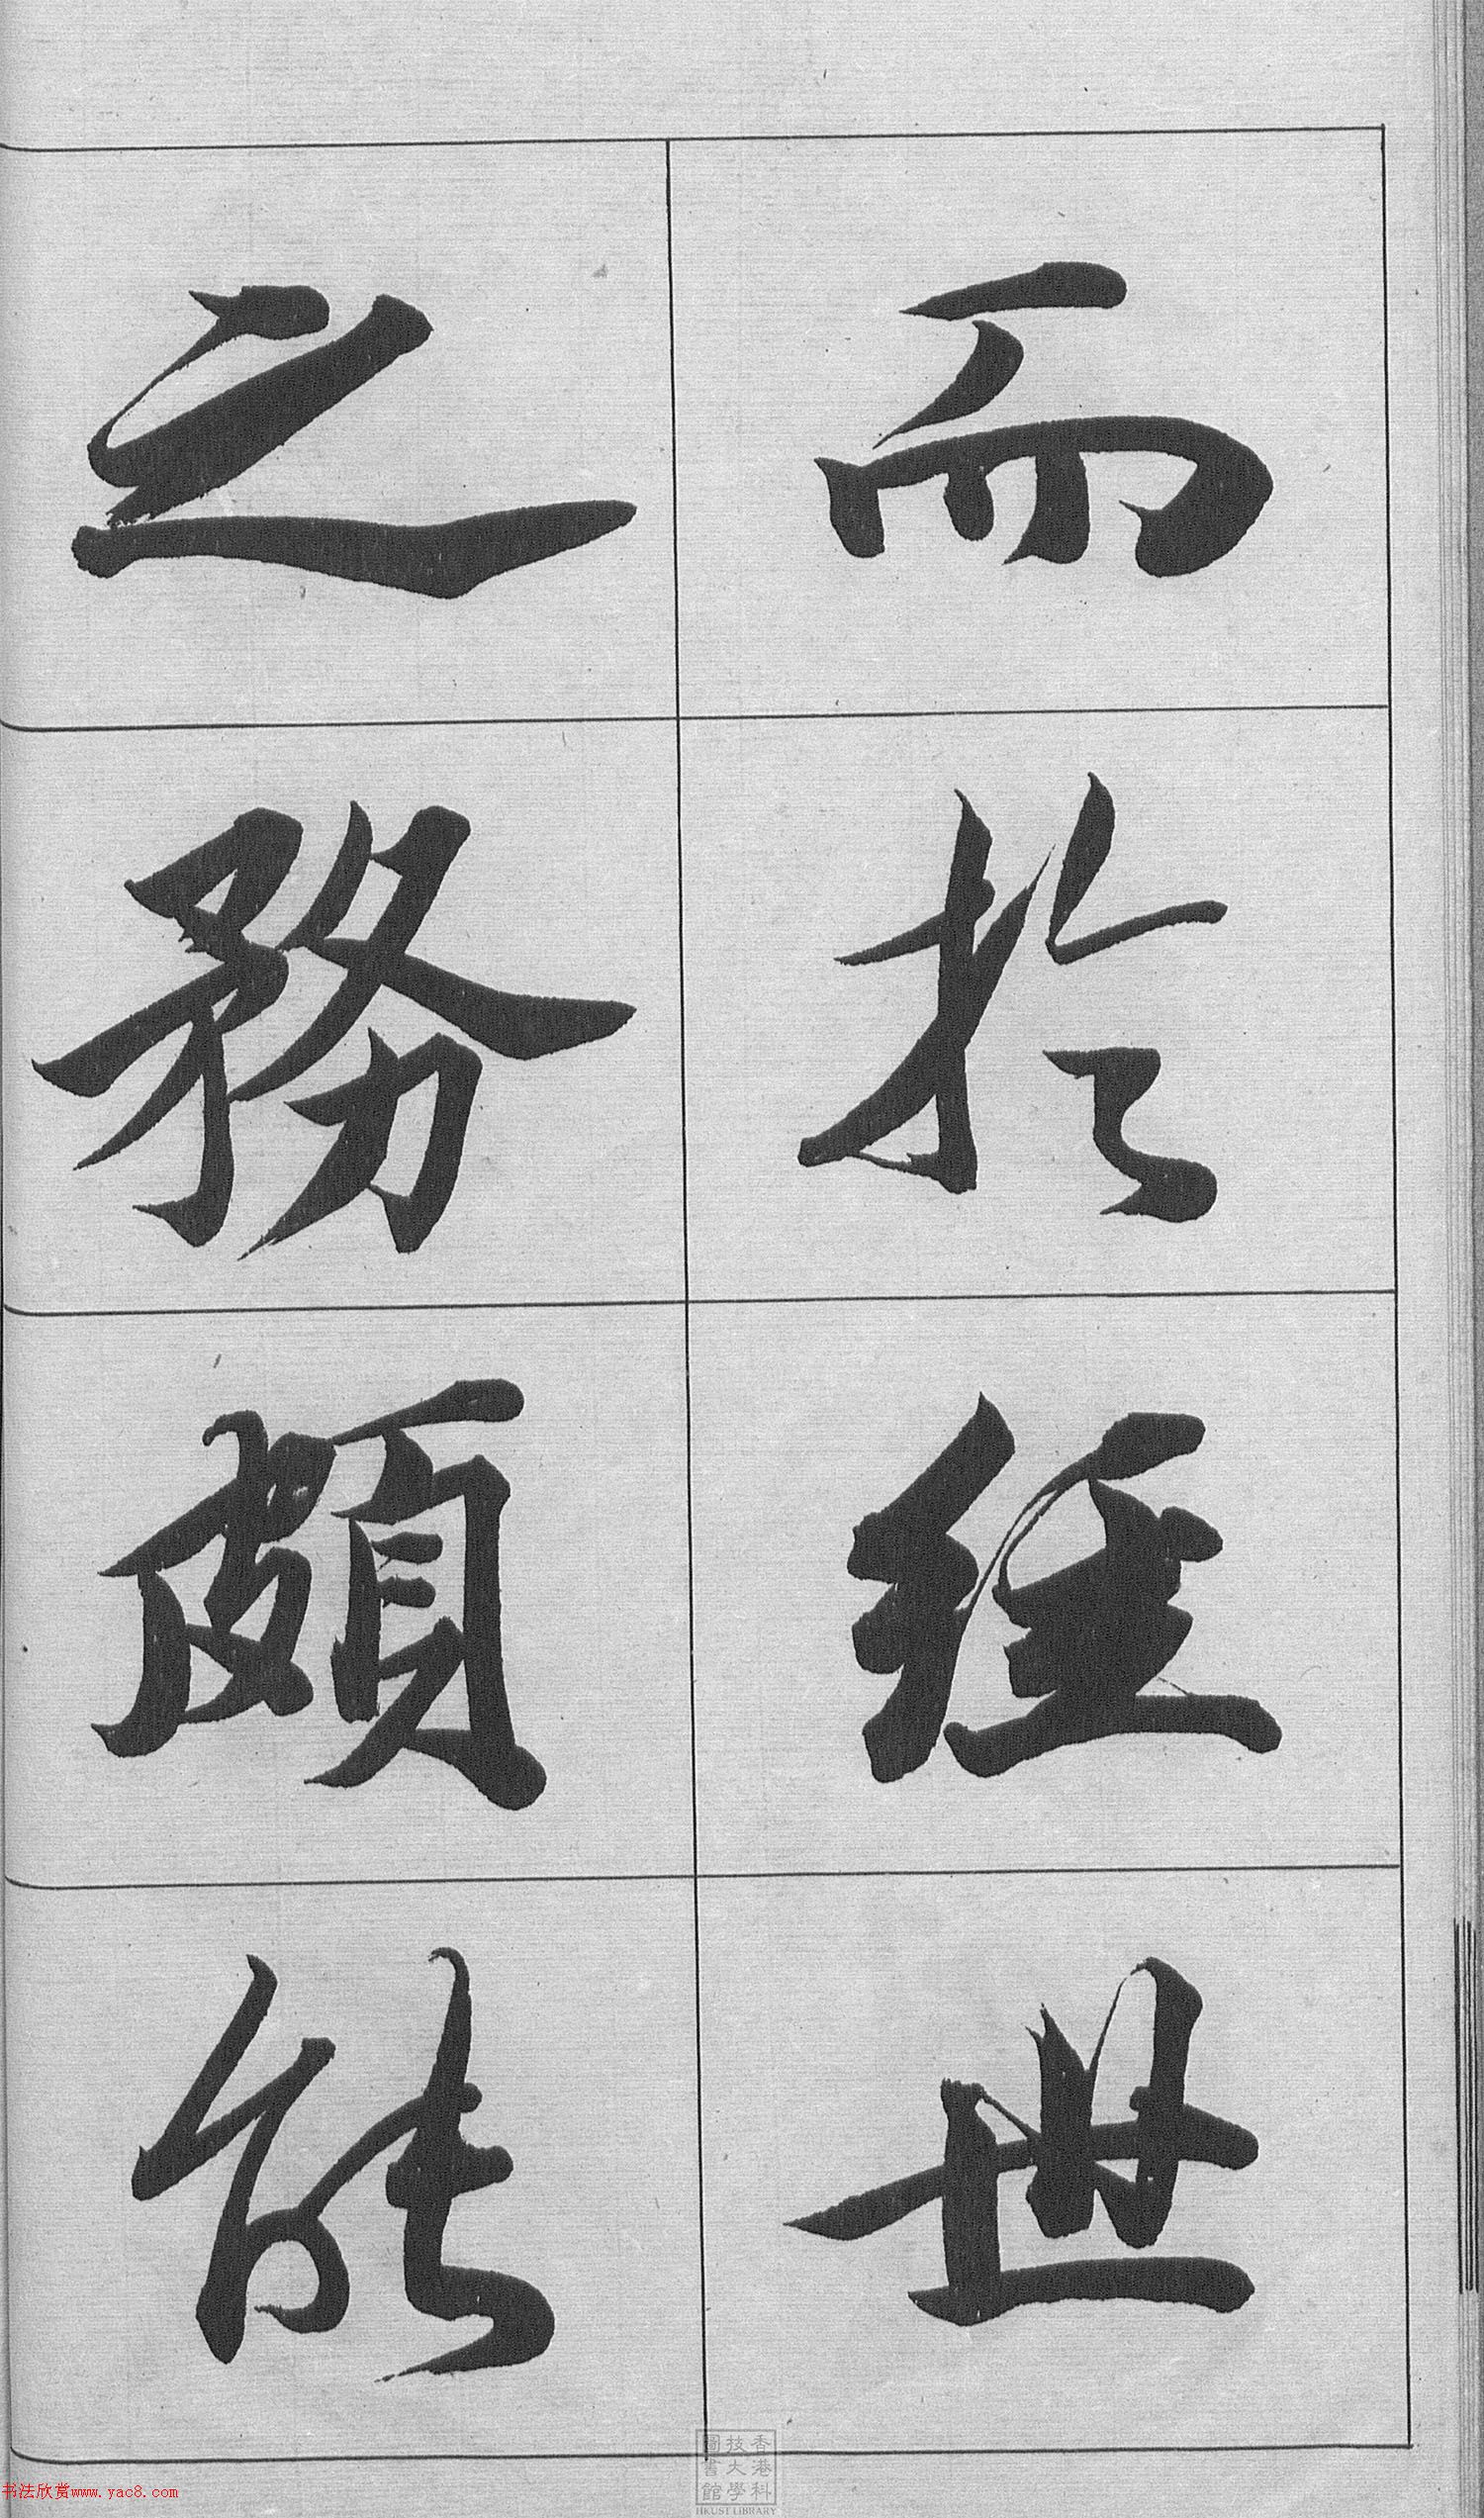 而於經世
之務頗能
香港科技大學圖書館
HKUST LIBRARY
书法欣赏www.yac8.com